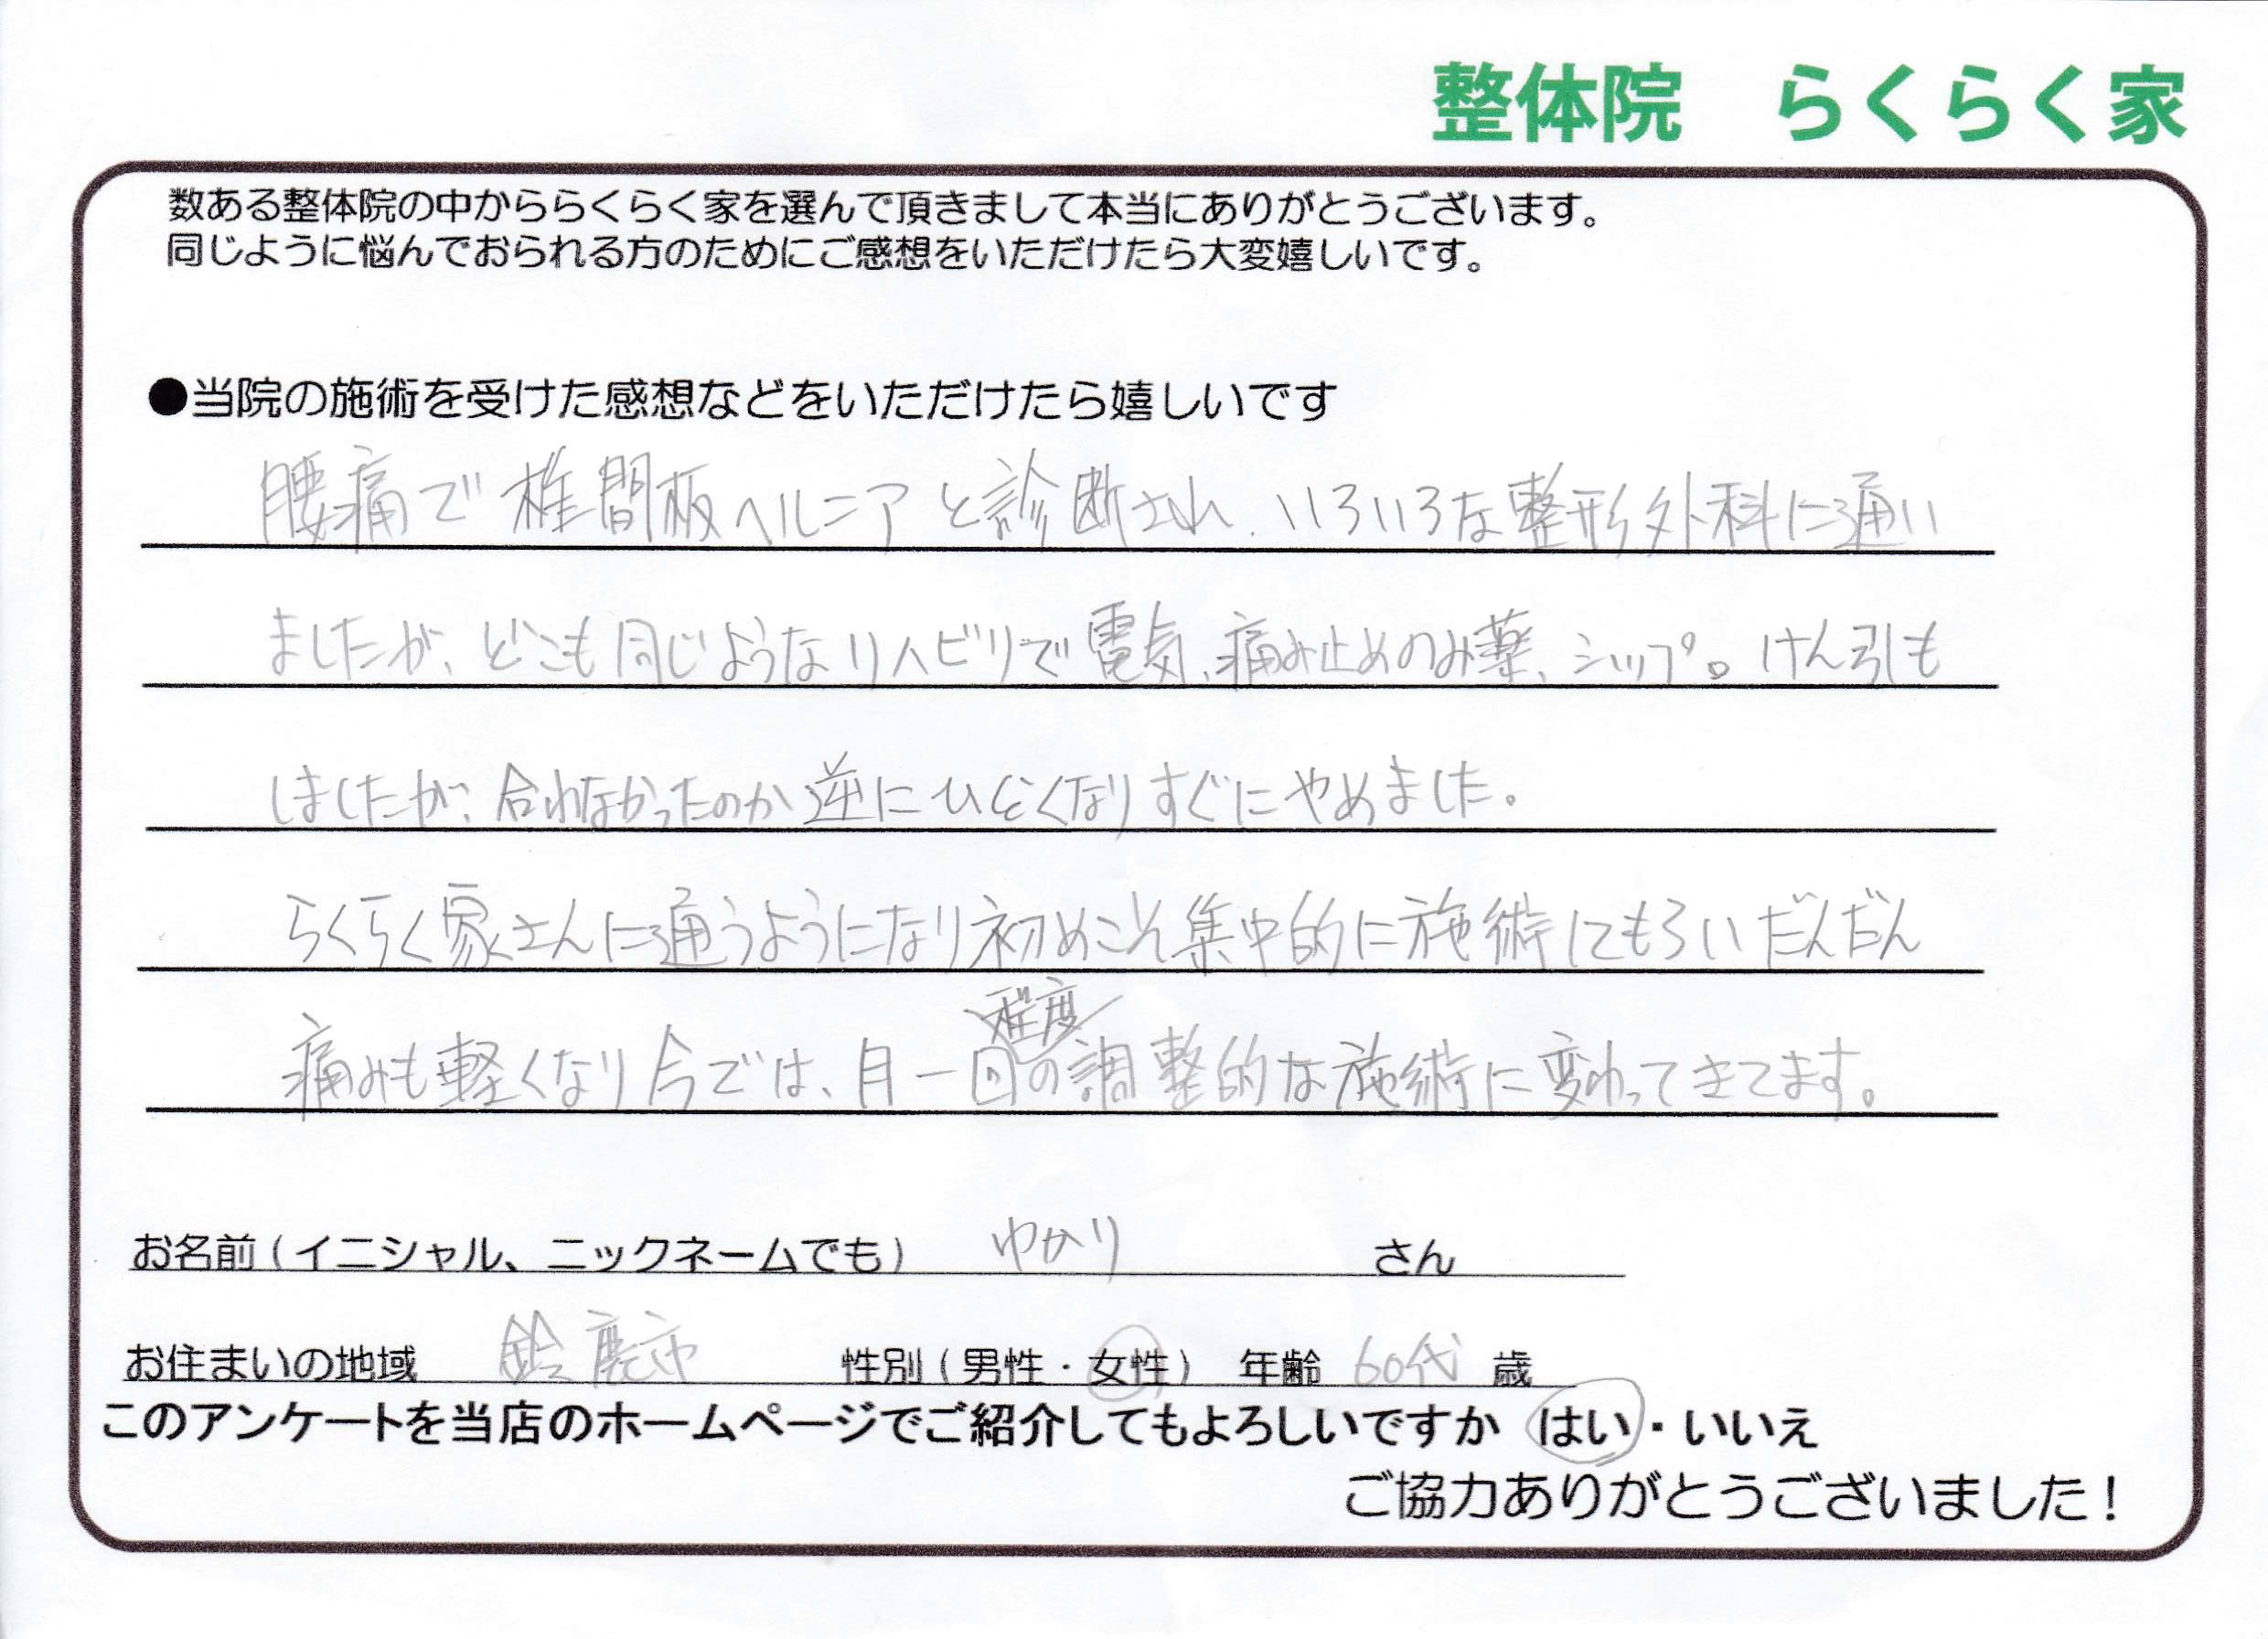 整体院 らくらく家
数ある整体院の中かららくらく家を選んで頂きまして本当にありがとうございます。
同じように悩んでおられる方のためにご感想をいただけたら大変嬉しいです。
●当院の施術を受けた感想などをいただけたら嬉しいです
腰痛で椎間板ヘルニアと診断され、いろいろな整形外科に通い
ましたが、どこも同じようなリハビリで電気、痛み止めのみ薬、シップ。けん引も
しましたが、合わなかったのか逆にひどくなりすぐにやめました。
らくらく家さんに通うようになり初めこそ集中的に施術にてもらいだんだん
程度
痛みも軽くなり今では、月一回の調整的な施術に変わってきてます。
お名前(イニシャル、ニックネームでも) ゆかり さん
お住まいの地域 鈴鹿市 性別(男性・女性) 年齢 60代 歳
このアンケートを当店のホームページでご紹介してもよろしいですか はい・いいえ
ご協力ありがとうございました!